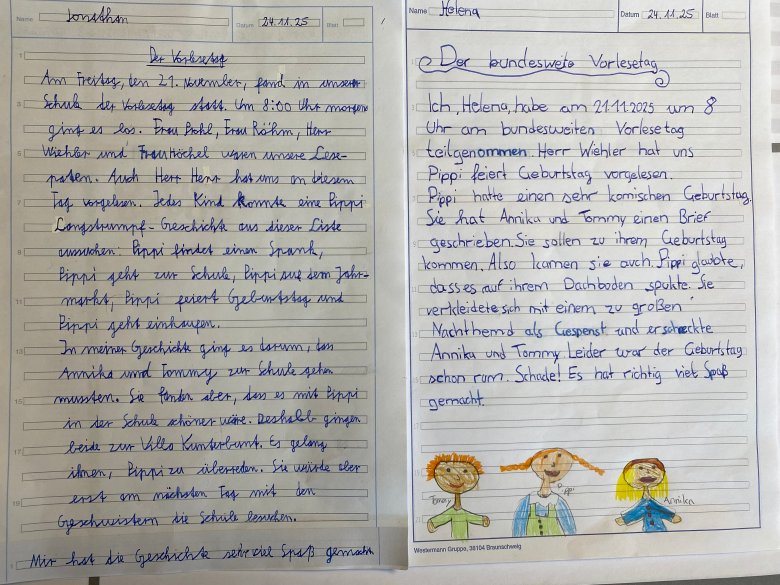 Name Jonathan Datum 24.11.25 Blatt
Der Vorlesetag
Am Freitag, den 21. November, fand in unserer
Schule der Vorlesetag statt. Um 8:00 Uhr morgens
ging es los. Frau Prohl, Frau Röhm, Herr
Wiehler und Frau Höchel waren unsere Lese-
paten. Auch Herr Herr hat uns an diesem
Tag vorgelesen. Jedes Kind konnte eine Pippi
Langstrumpf-Geschichte aus dieser Liste
aussuchen: Pippi findet einen Spunk,
Pippi geht zur Schule, Pippi auf dem Jahr-
markt, Pippi feiert Geburtstag und
Pippi geht einkaufen.
In meiner Geschichte ging es darum, dass
Annika und Tommy zur Schule gehen
mussten. Sie fanden aber, dass es mit Pippi
in der Schule schöner wäre. Deshalb gingen
beide zur Villa Kunterbunt. Es gelang
ihnen, Pippi zu überreden. Sie würde aber
erst am nächsten Tag mit den
Geschwistern die Schule besuchen.
Mir hat die Geschichte sehr viel Spaß gemacht
Name Helena Datum 24.11.25 Blatt
Der bundesweite Vorlesetag
Ich, Helena, habe am 21.11.2025 um 8
Uhr am bundesweiten Vorlesetag
teilgenommen. Herr Wiehler hat uns
Pippi feiert Geburtstag vorgelesen.
Pippi hatte einen sehr komischen Geburtstag.
Sie hat Annika und Tommy einen Brief
geschrieben. Sie sollen zu ihrem Geburtstag
kommen. Also kamen sie auch. Pippi glaubte,
dass es auf ihrem Dachboden spukte. Sie
verkleidete sich mit einem zu großen
Nachthemd als Gespenst und erschreckte
Annika und Tommy. Leider war der Geburtstag
schon rum. Schade! Es hat richtig viel Spaß
gemacht.
Tommy
Pippi
Annika
Westermann Gruppe, 38104 Braunschweig